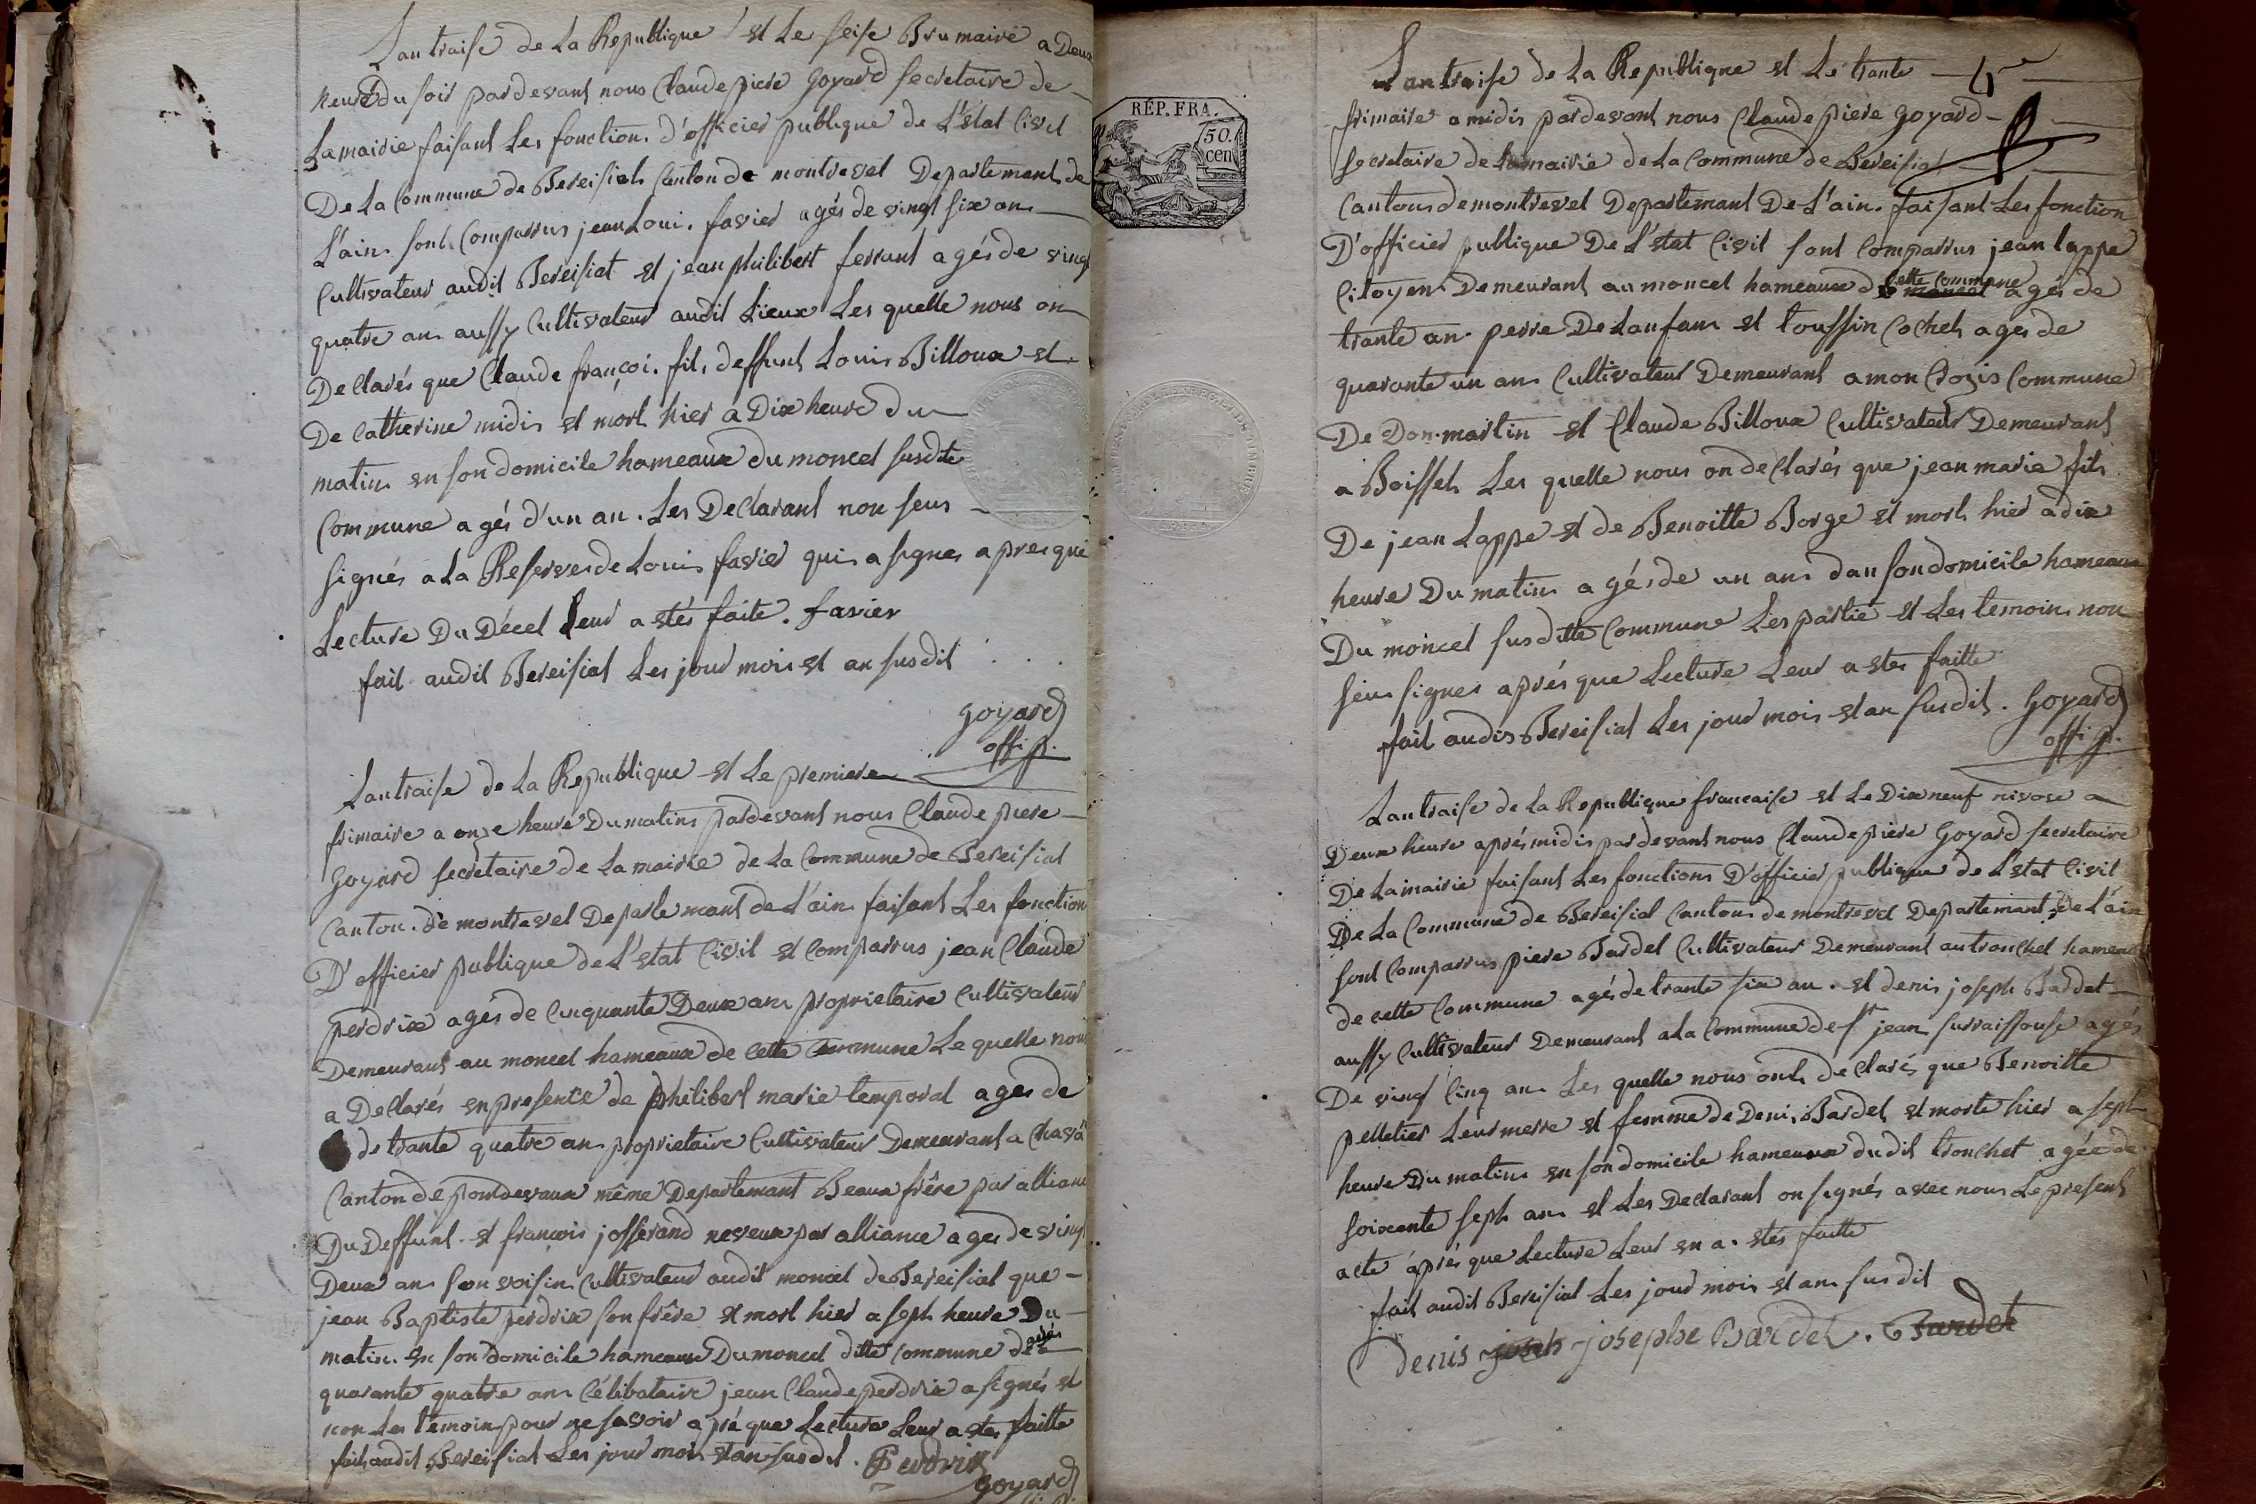 Lan traise de La Republique et Le seise Brumaire a Deux
heure du soir pardevant nous Claude piere Goyard secretaire de
La mairie faisant Les fonction d'officier publique de L'état Civil
De La Commune de Bereisiat Canton de montrevel Departement de
L'ain sont Comparrus jean Loui favier agés de vingt six an
Cultivateur audit Bereisiat et jean philibert ferrant agés de vingt
quatre an aussy Cultivateur audit Lieux Les quelle nous on
Declarés que Claude françoi fils deffunt Louis Billoux et
De Catherine midi et mort hier a Dix heure du
matin en son domicile hameaux du moncel susdite
Commune agés d'un an. Les Declarant non seus
signés a La Reserve de Louis favier qui a signes apres que
Lecture Du Décet Leur a etés faite. favier
fait audit Bereisiat Les jour mois et an susdit
Goyard
offi p.
Lan traise de La Republique et Le premiere
frimaire a onze heure Du matin pardevant nous Claude piere
Goyard secretaire de La mairie de La Commune de Bereisiat
Canton de montrevel Departemant de L'ain faisant Les fonction
D'officier publique de L'etat Civil et Comparrus jean Claude
perdrix agés de Cinquante Deux an proprietaire Cultivateur
Demeurant au moncel hameaux de Cette Commune Le quelle nous
a Declarés en presence de philibert marie temporal ages de
de trante quatre an proprietaire Cultivateur Demeurant a Chava
Canton de pondevaux même Departemant Beaux frêre par alliance
Du Deffunt et francois josserand neveux par alliance ages de vingt
Deux an son voisin Cultivateur audit moncel de Bereisiat que
jean Baptiste perdrix son frêre et mort hier a seph heure Du
matin en son domicile hameaux Du moncel ditte Commune agés de
quarante quatre an Célibataire jean Claude perdrix a signés et
non Les temoin pour ne savoir apré que Lecture Leur a etes faitte
fait audit Bereisiat Les jour mois et an susdit. Perdrix
Goyard
RÉP. FRA.
50.
cen
Lan traise de La Republique et Le trante
frimaire a midis pardevant nous Claude piere Goyard
secretaire de La mairie de La Commune de Bereisiat
Canton de montrevel Departemant De L'ain faisant Les fonction
D'officier publique De L'etat Civil sont Comparrus jean Lappe
Citoyen Demeurant au moncel hameaux de Cette Commune agés de
trante an perre De Lanfan et toussin Cochet ages de
quarante un an Cultivateur Demeurant a mon Crozis Commune
De Don martin et Claude Billoux Cultivateur Demeurant
a Boisset Les quelle nous on declarés que jean marie fils
De jean Lappe et de Benoitte Borge et mort hier a dix
heure Du matin agés de un an dan son domicile hameaux
Du moncel susditte Commune Les partie et Les temoin non
seu signer aprés que Lecture Leur a etes faitte
fait audis Bereisiat Les jour mois et an susdit. Goyard
offi p.
Lan traise de La Republique francaise et Le Dix neuf nivose a
Deux heure aprés midis pardevant nous Claude piere Goyard secretaire
De La mairie faisant Les fonctions D'officier publique de L'etat Civil
De La Commune de Bereisiat Canton de montrevel Departemant de L'ain
sont Comparrus piere Bardet Cultivateur Demeurant au tronchet hameaux
de cette Commune agés de trante six an et denis joseph Bardet
aussy Cultivateur Demeurant a La Commune de St jean surraissouse agés
De vingt Cinq an Les quelle nous onts declarés que Benoitte
pelletier Leur merre et femme de Deni Bardet et morte hier a seph
heure Du matin en son domicile hameaux dudit tronchet agée de
soixante seph an et Les Declarant on signés avec nous Le present
acte áprés que Lecture Leur en a etés faitte
fait audit Bereisiat Les jour mois et an susdit
denis josephe Bardet. Bardet